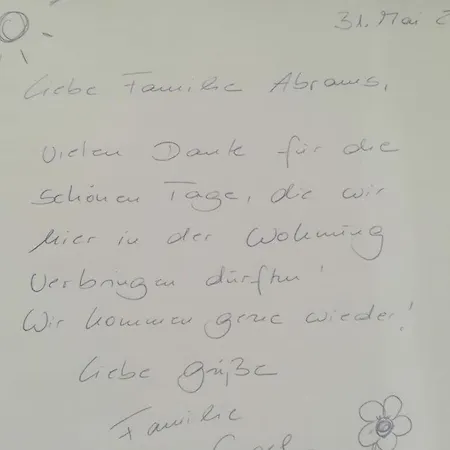 31. Mai 2
Liebe Familie Abrams,
Vielen Dank für die
schönen Tage, die wir
hier in der Wohnung
verbringen durften!
Wir kommen gerne wieder!
Liebe Grüße
Familie